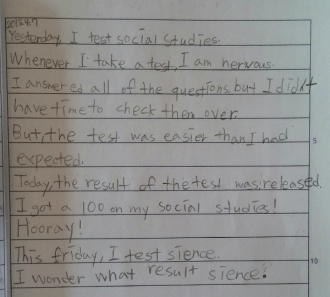 Yesterday, I test social studies.
Whenever I take a test, I am nervous.
I answered all of the questions, but I didn't
have time to check then over.
But, the test was easier than I had
5
expected.
Today, the result of the test was released.
I got a 100 on my social studies!
Hooray!
This friday, I test sience.
10
I wonder what result sience?